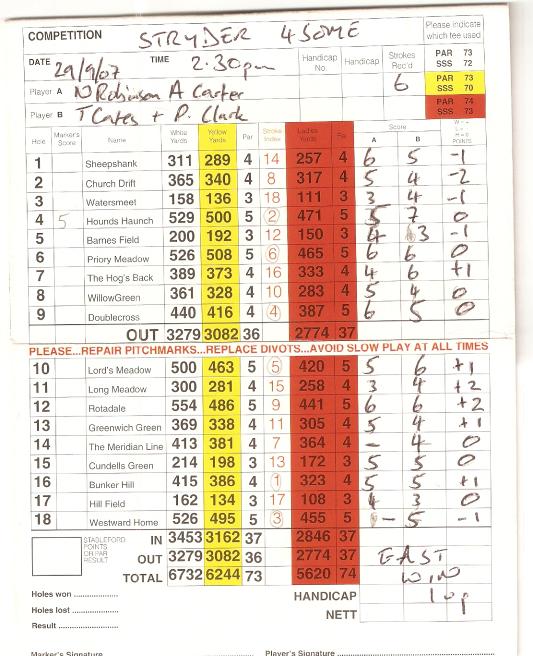 COMPETITION STRYDER 4SOME Please indicate which fee used
DATE 29/9/07 TIME 2.30pm Handicap No. Handicap Strokes Rec'd PAR 73 SSS 72
Player A N Robinson A Carter 6 PAR 73 SSS 70
Player B T Cates + P. Clark PAR 74 SSS 73
Hole Marker's Score Name White Yards Yellow Yards Par Stroke Index Ladies Yards Par Score A B POINTS
1 Sheepshank 311 289 4 14 257 4 6 5 -1
2 Church Drift 365 340 4 8 317 4 5 4 -2
3 Watersmeet 158 136 3 18 111 3 3 4 -1
4 5 Hounds Haunch 529 500 5 2 471 5 5 7 0
5 Barnes Field 200 192 3 12 150 3 4 3 -1
6 Priory Meadow 526 508 5 6 465 5 6 6 0
7 The Hog's Back 389 373 4 16 333 4 4 6 +1
8 WillowGreen 361 328 4 10 283 4 5 4 0
9 Doublecross 440 416 4 4 387 5 6 5 0
OUT 3279 3082 36 2774 37
PLEASE...REPAIR PITCHMARKS...REPLACE DIVOTS...AVOID SLOW PLAY AT ALL TIMES
10 Lord's Meadow 500 463 5 5 420 5 5 6 +1
11 Long Meadow 300 281 4 15 258 4 3 4 +2
12 Rotadale 554 486 5 9 441 5 6 6 +2
13 Greenwich Green 369 338 4 11 305 4 5 4 +1
14 The Meridian Line 413 381 4 7 364 4 - 4 0
15 Cundells Green 214 198 3 13 172 3 5 5 0
16 Bunker Hill 415 386 4 1 323 4 5 5 +1
17 Hill Field 162 134 3 17 108 3 4 3 0
18 Westward Home 526 495 5 3 455 5 - 5 -1
STABLEFORD POINTS OR PAR RESULT
IN 3453 3162 37 2846 37
OUT 3279 3082 36 2774 37
TOTAL 6732 6244 73 5620 74
EAST
WIN
1up
Holes won
HANDICAP
Holes lost
NETT
Result
Marker's Signature Player's Signature